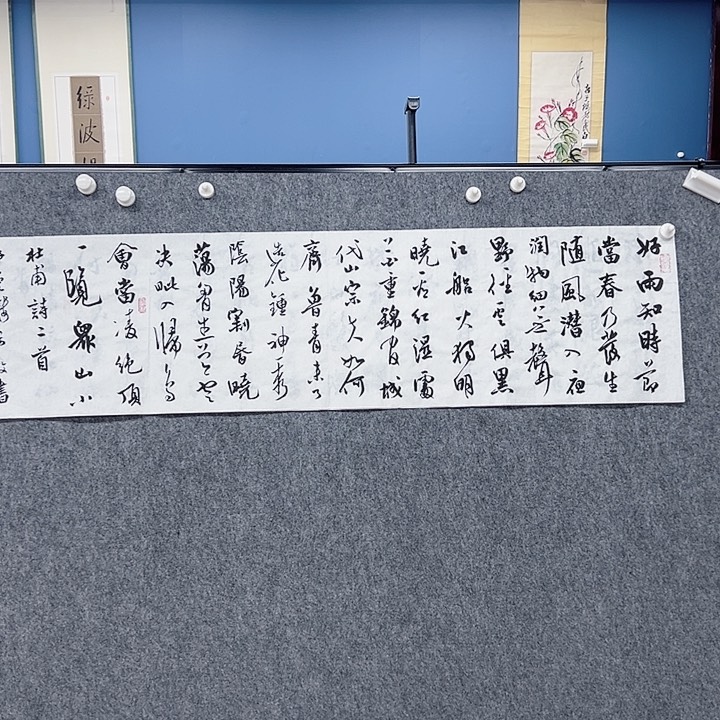 好雨知時節
當春乃發生
随風潜入夜
潤物細无聲
野徑雲俱黑
江船火獨明
曉看红湿處
花重錦官城
岱宗夫如何
齊魯青未了
造化鍾神秀
陰陽割昏曉
蕩胸生曾雲
決眥入歸鳥
會當凌绝頂
一覽衆山小
杜甫詩二首
書
绿波